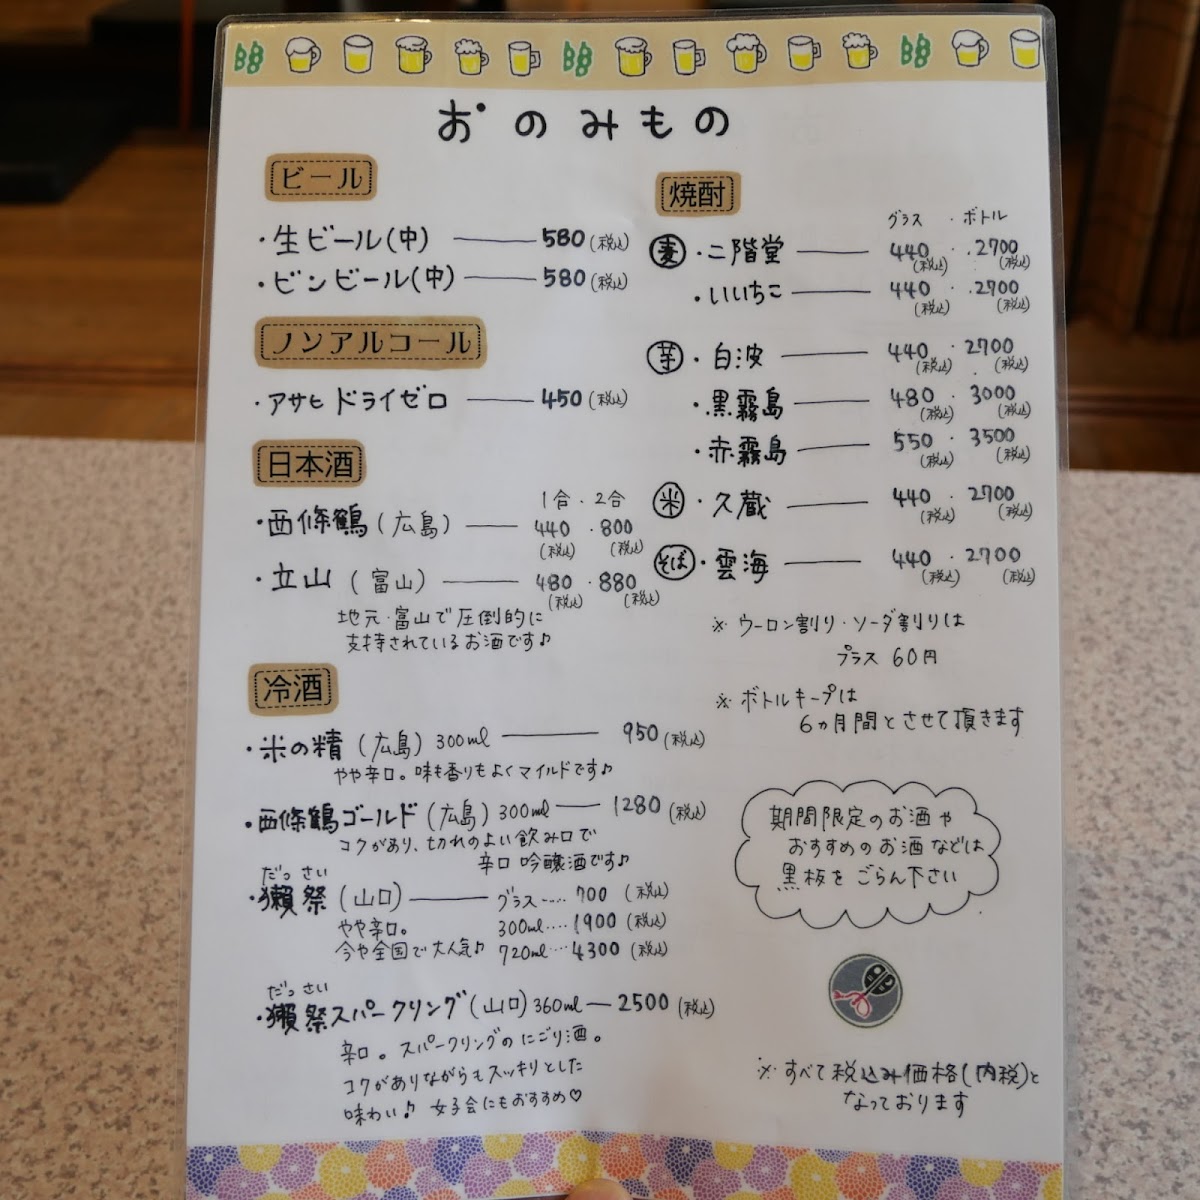 おのみもの
ビール
・生ビール(中) 580(税込)
・ビンビール(中) 580(税込)
ノンアルコール
・アサヒ ドライゼロ 450(税込)
日本酒
1合・2合
・西條鶴(広島) 440(税込)・800(税込)
・立山(富山) 480(税込)・880(税込)
地元・富山で圧倒的に
支持されているお酒です♪
冷酒
・米の精(広島)300ml 950(税込)
やや辛口。味も香りもよくマイルドです♪
・西條鶴ゴールド(広島)300ml 1280(税込)
コクがあり、切れのよい飲み口で
辛口 吟醸酒です♪
だっさい
・獺祭(山口) グラス‥‥700(税込)
やや辛口。 300ml‥‥1900(税込)
今や全国で大人気♪ 720ml‥‥4300(税込)
だっさい
・獺祭スパークリング(山口)360ml 2500(税込)
辛口。スパークリングのにごり酒。
コクがありながらもスッキリとした
味わい♪ 女子会にもおすすめ♡
焼酎
グラス・ボトル
麦・二階堂 440(税込)・2700(税込)
・いいちこ 440(税込)・2700(税込)
芋・白波 440(税込)・2700(税込)
・黒霧島 480(税込)・3000(税込)
・赤霧島 550(税込)・3500(税込)
米・久蔵 440(税込)・2700(税込)
そば・雲海 440(税込)・2700(税込)
※ウーロン割り・ソーダ割りは
プラス60円
※ボトルキープは
6ヵ月間とさせて頂きます
期間限定のお酒や
おすすめのお酒などは
黒板をごらん下さい
※すべて税込み価格(内税)と
なっております